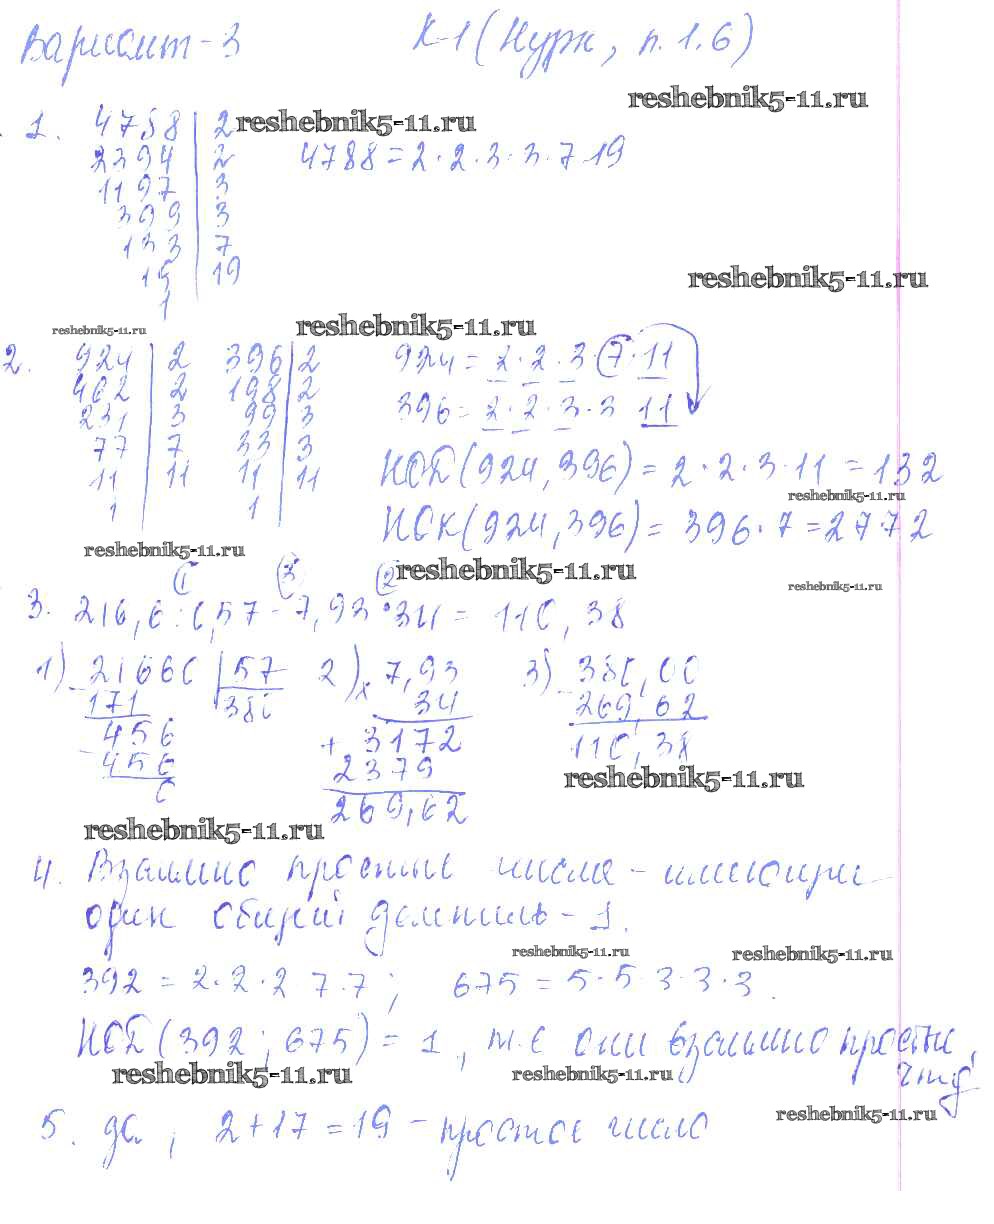 Вариант-3 К-1 (Нурк, п.1.6)
reshebnik5-11.ru
1. 4788 | 2 reshebnik5-11.ru
2394 | 2 4788 = 2·2·3·3·7·19
1197 | 3
399 | 3
133 | 7
19 | 19
reshebnik5-11.ru
1
reshebnik5-11.ru reshebnik5-11.ru
2. 924 | 2 396 | 2 924 = 2·2·3·7·11
462 | 2 198 | 2
231 | 3 99 | 3 396 = 2·2·3·3 11
77 | 7 33 | 3
11 | 11 11 | 11 НОД (924, 396) = 2·2·3·11 = 132
reshebnik5-11.ru
1 1
НОК (924, 396) = 396·7 = 2772
reshebnik5-11.ru
1 3 2 reshebnik5-11.ru
reshebnik5-11.ru
3. 216,6 : 0,57 - 7,93·34 = 110,38
1) 21660 | 57 2) x 7,93 3) 380,00
- 171 380 34 - 269,62
456 + 3172 110,38
- 456 2379 reshebnik5-11.ru
0 269,62
reshebnik5-11.ru
4. Взаимно простые числа - имеющие
один общий делитель - 1.
reshebnik5-11.ru reshebnik5-11.ru
392 = 2·2·2·7·7; 675 = 5·5·3·3·3.
НОД (392; 675) = 1, т.е они взаимно просты,
reshebnik5-11.ru reshebnik5-11.ru чтд
reshebnik5-11.ru
5. да, 2+17=19 - простое число